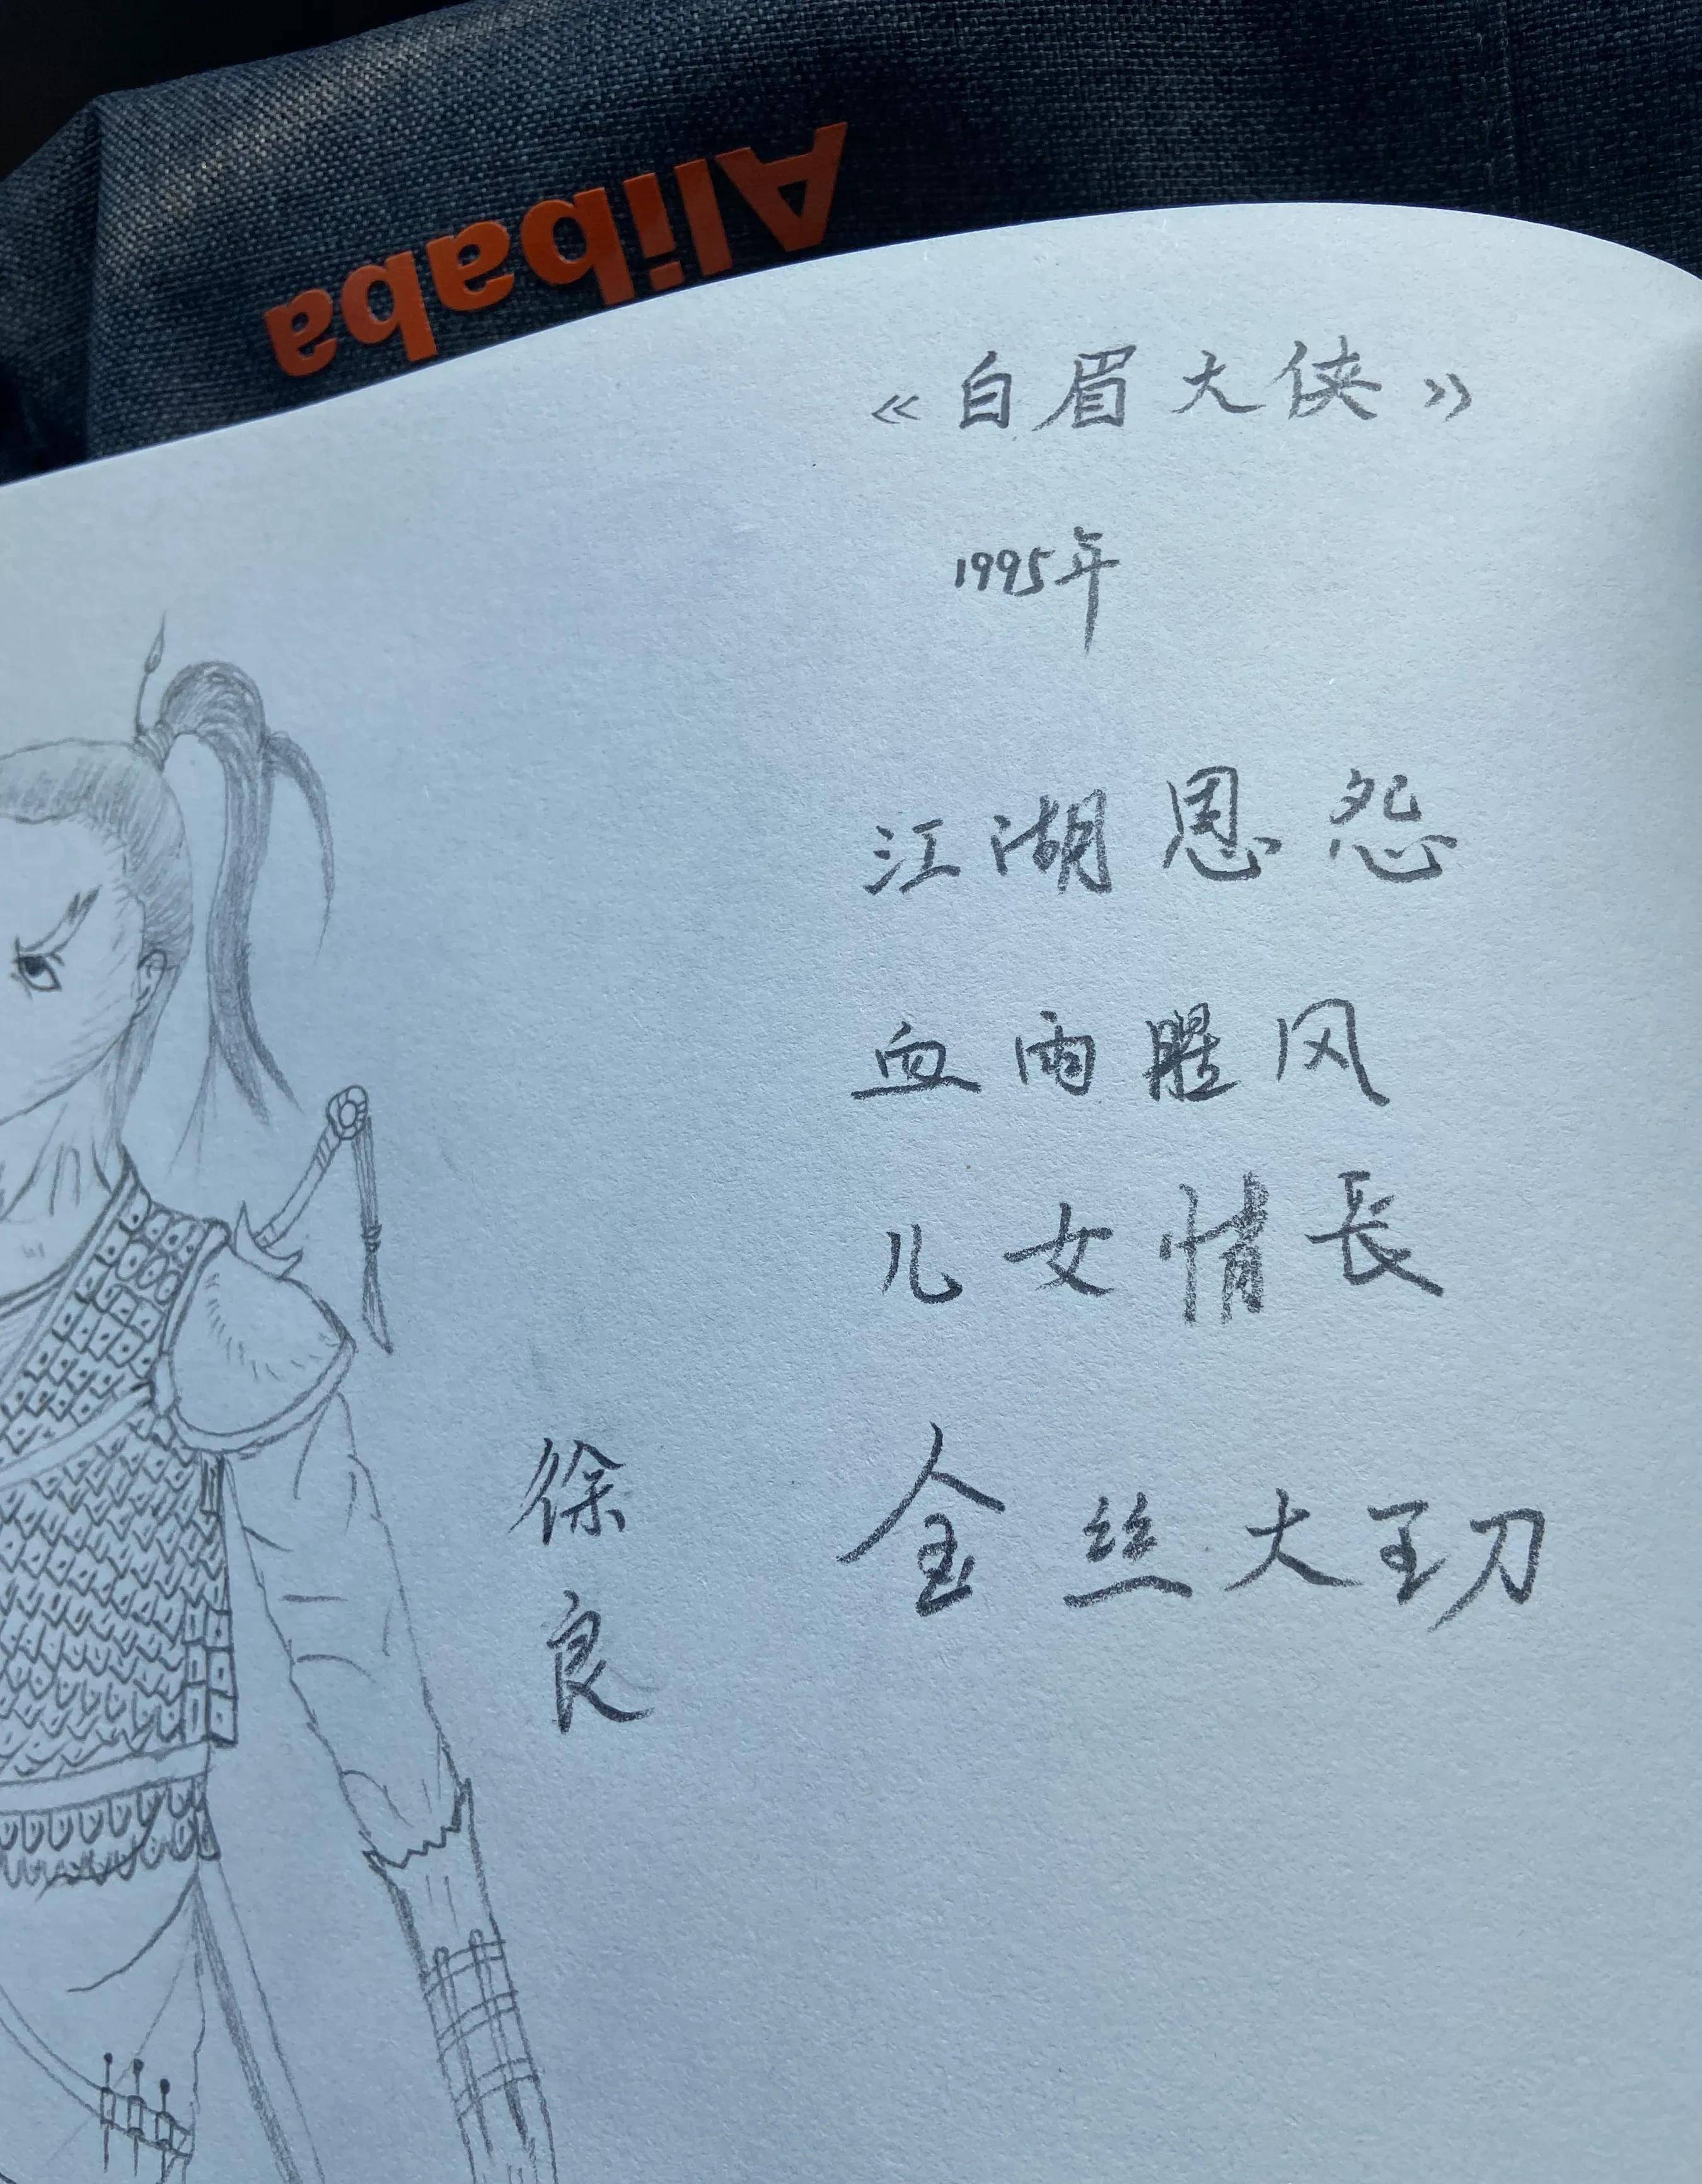 Alibaba
《白眉大侠》
1995年
江湖恩怨
血雨腥风
儿女情长
金丝大环刀
徐良